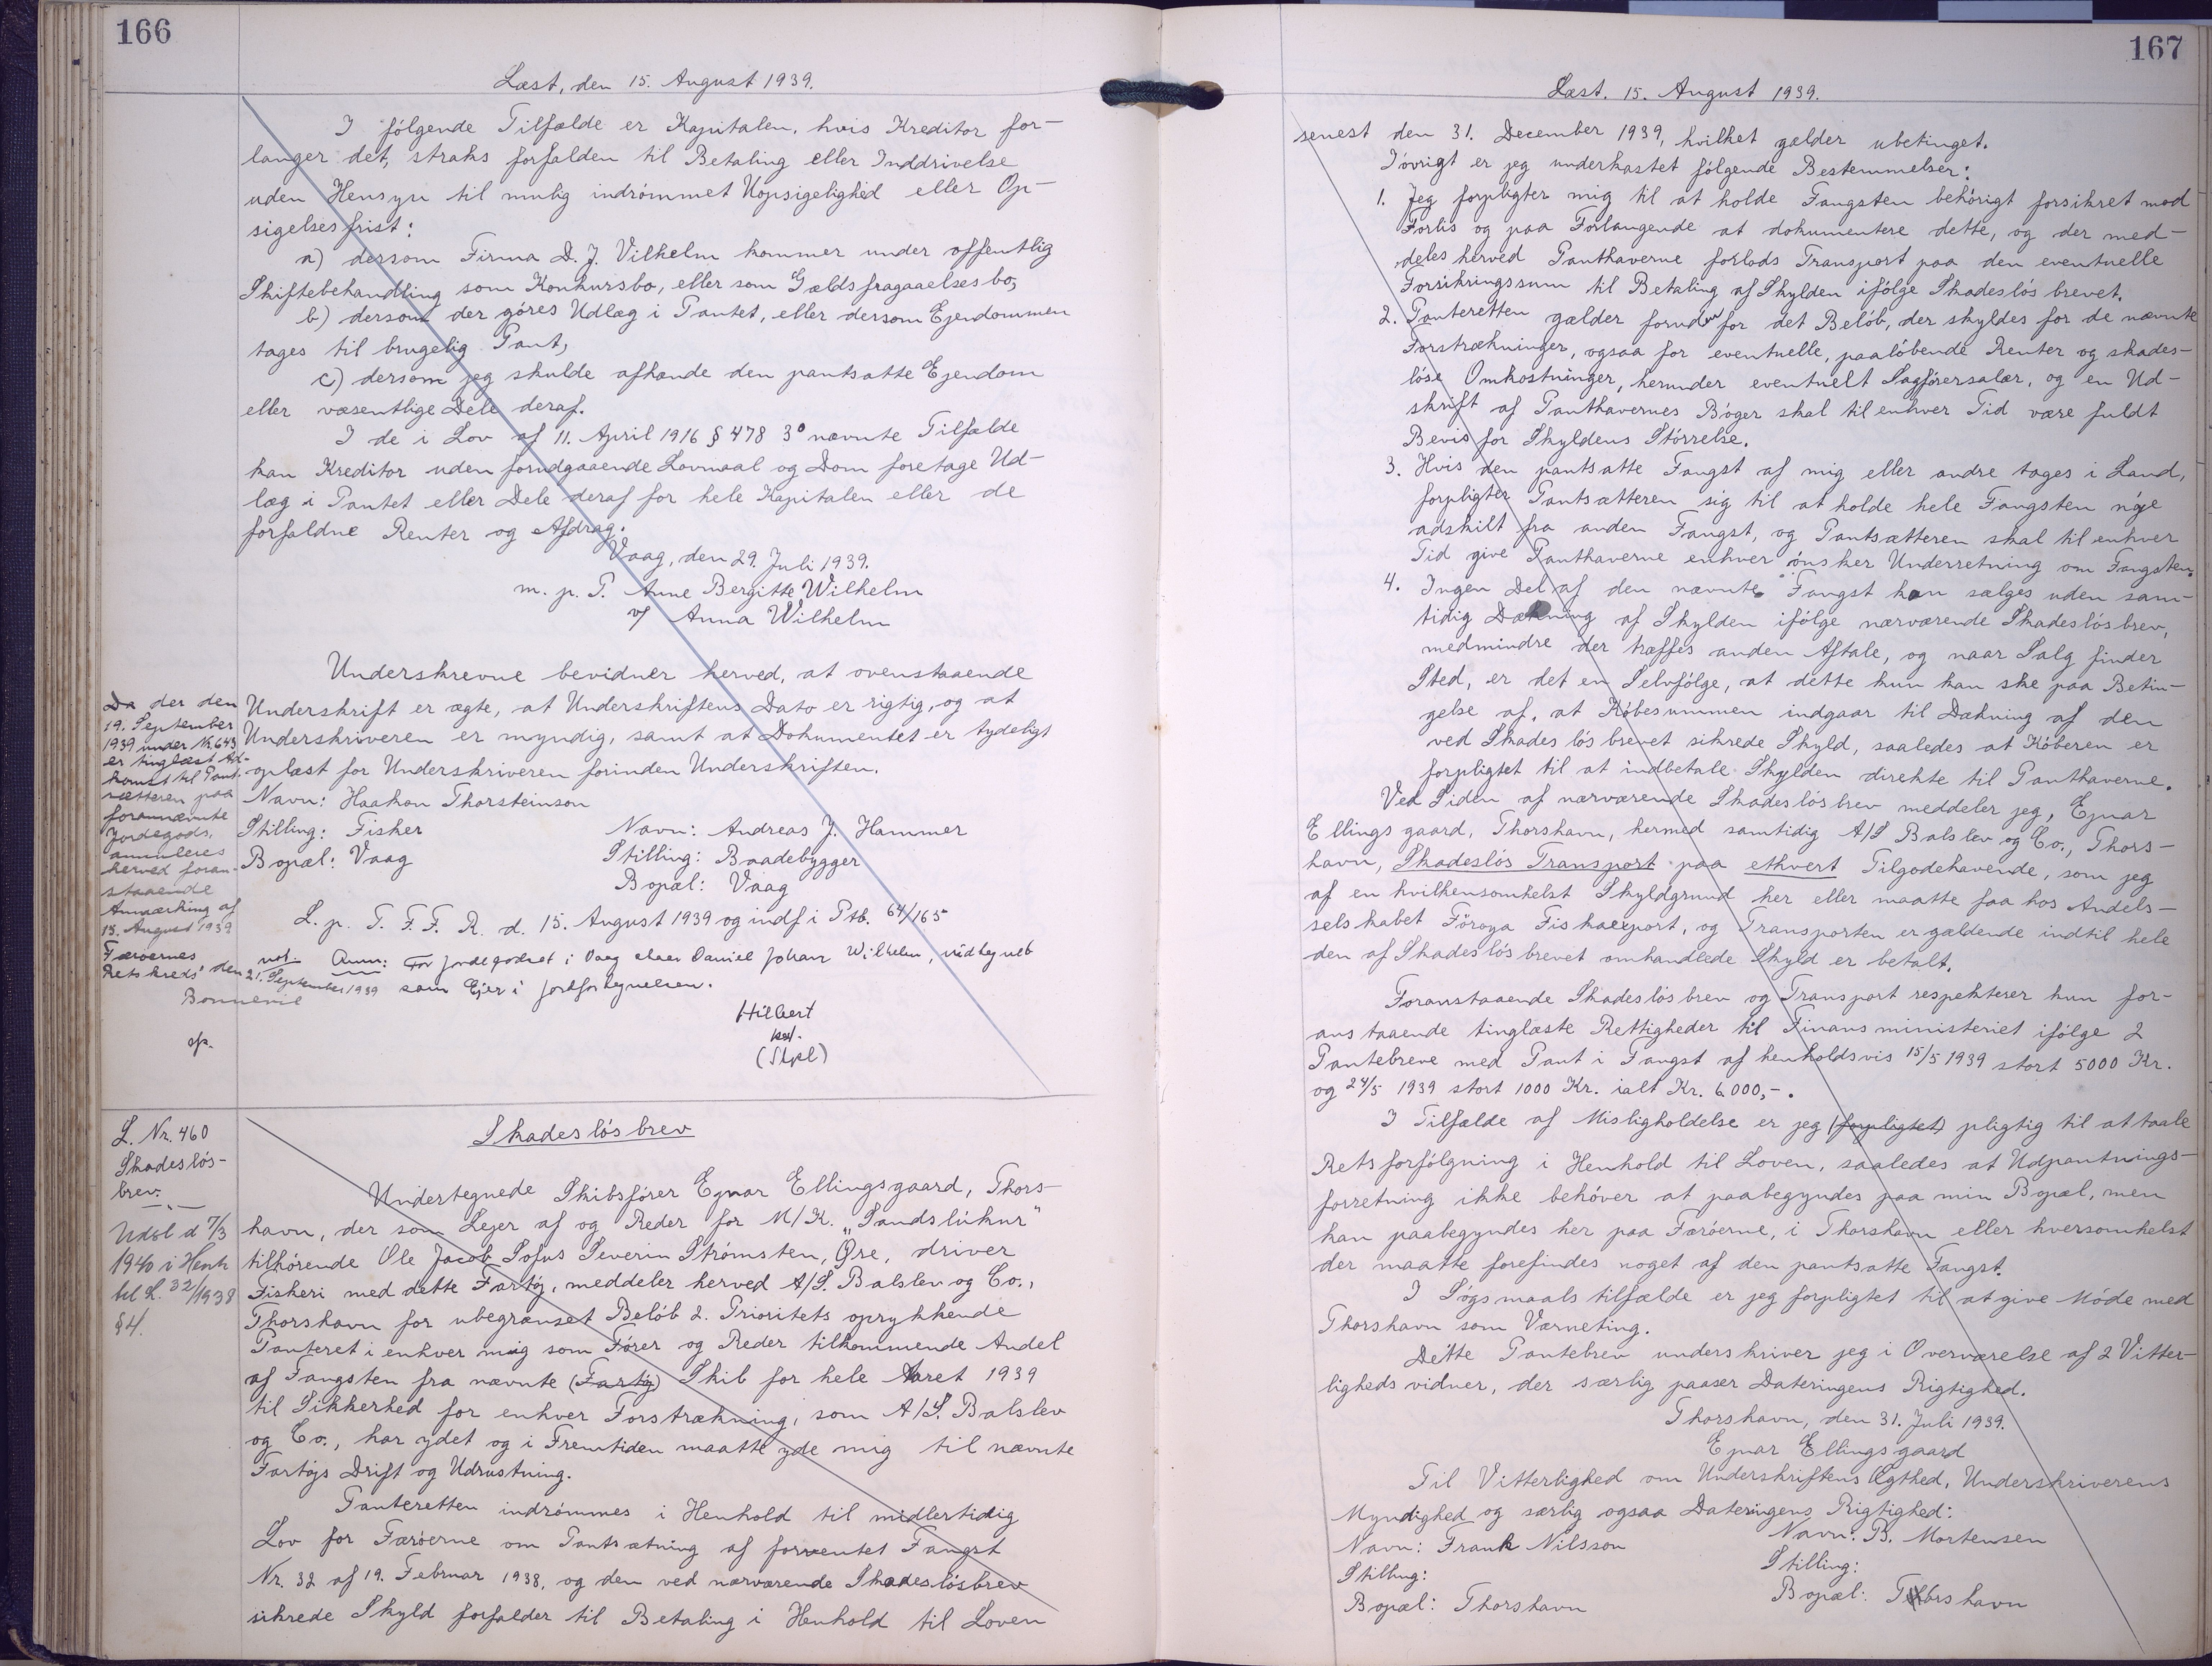 166
Læst, den 15. August 1939.
I følgende Tilfælde er Kapitalen, hvis Kreditor for-
langer det, straks forfalden til Betaling eller Inddrivelse
uden Hensyn til mulig indrømmet Uopsigelighed eller Op-
sigelsesfrist:
a) dersom Firma D. J. Vilhelm kommer under offentlig
Skiftebehandling som Konkursbo, eller som Gældsfragaaelsesbo,
b) dersom der gøres Udlæg i Pantet, eller dersom Ejendommen
tages til brugelig Pant,
c) dersom jeg skulde afhænde den pantsatte Ejendom
eller væsentlige Dele deraf.
I de i Lov af 11. April 1916 § 478 3° nævnte Tilfælde
kan Kreditor uden forudgaaende Lovmaal og Dom foretage Ud-
læg i Pantet eller Dele deraf for hele Kapitalen eller de
forfaldne Renter og Afdrag.
Vaag, den 29. Juli 1939.
m. p. P. Anne Bergitte Wilhelm
v/ Anna Wilhelm
Underskrevne bevidner herved, at ovenstaaende
Underskrift er ægte, at Underskriftens Dato er rigtig, og at
Underskriveren er myndig, samt at Dokumentet er tydeligt
oplæst for Underskriveren forinden Underskriften.
Navn: Haakon Thorsteinson
Stilling: Fisker
Bopæl: Vaag
Navn: Andreas J. Hammer
Stilling: Baadebygger
Bopæl: Vaag
L. p. T. F. F. R. d. 15. August 1939 og indf i Ptb. 64/165
Anm: For Jordegodset i Vaag staar Daniel Johan Wilhelm, indtegnet
som Ejer i Jordfortegnelsen.
Hilbert
kst.
(Stpl)
Da der den
19. September
1939 under Nr. 643
er tinglæst Ad-
komst til Pant-
sætteren paa
forannævnte
Jordegods,
annulleres
herved foran-
staaende
Anmærkning af
15. August 1939
Færøernes
Retskreds' den 21. September 1939
Bonnevie
L. Nr. 460
Skadesløs-
brev.
Udsl d 7/3
1940 i Henh
til L. 32/1938
§ 4.
Skadesløsbrev
Undertegnede Skibsfører Ejnar Ellingsgaard, Thors-
havn, der som Lejer af og Reder for M/K. "Sandslúkur"
tilhørende Ole Jacob Sofus Severin Strømsten, Øre, driver
Fiskeri med dette Fartøj, meddeler herved A/S. Balslev og Co.,
Thorshavn for ubegrænset Beløb 2. Prioritets oprykkende
Panteret i enhver mig som Fører og Reder tilkommende Andel
af Fangsten fra nævnte (Fartøj) Skib for hele Aaret 1939
til Sikkerhed for enhver Forstrækning, som A/S. Balslev
og Co., har ydet og i Fremtiden maatte yde mig til nævnte
Fartøjs Drift og Udrustning.
Panteretten indrømmes i Henhold til midlertidig
Lov for Færøerne om Pantsætning af forventet Fangst
Nr. 32 af 19. Februar 1938, og den ved nærværende Skadesløsbrev
sikrede Skyld forfalder til Betaling i Henhold til Loven
167
Læst. 15. August 1939.
senest den 31. December 1939, hvilket gælder ubetinget.
Iøvrigt er jeg underkastet følgende Bestemmelser:
1. Jeg forpligter mig til at holde Fangsten behørigt forsikret mod
Forlis og paa Forlangende at dokumentere dette, og der med-
deles herved Panthaverne forlods Transport paa den eventuelle
Forsikringssum til Betaling af Skylden ifølge Skadesløsbrevet.
2. Panteretten gælder foruden for det Beløb, der skyldes for de nævnte
Forstrækninger, ogsaa for eventuelle, paaløbende Renter og skades-
løse Omkostninger, herunder eventuelt Sagførersalær, og en Ud-
skrift af Panthavernes Bøger skal til enhver Tid være fuldt
Bevis for Skyldens Størrelse.
3. Hvis den pantsatte Fangst af mig eller andre tages i Land,
forpligter Pantsætteren sig til at holde hele Fangsten nøje
adskilt fra anden Fangst, og Pantsætteren skal til enhver
Tid give Panthaverne enhver ønsket Underretning om Fangsten.
4. Ingen Del af den nævnte Fangst kan sælges uden sam-
tidig Dækning af Skylden ifølge nærværende Skadesløsbrev,
medmindre der træffes anden Aftale, og naar Salg finder
Sted, er det en Selvfølge, at dette kun kan ske paa Betin-
gelse af, at Købesummen indgaar til Dækning af den
ved Skadesløsbrevet sikrede Skyld, saaledes at Køberen er
forpligtet til at indbetale Skylden direkte til Panthaverne.
Ved Siden af nærværende Skadesløsbrev meddeler jeg, Ejnar
Ellingsgaard, Thorshavn, hermed samtidig A/S Balslev og Co., Thors-
havn, Skadesløs Transport paa ethvert Tilgodehavende, som jeg
af en hvilkensomhelst Skyldgrund her eller maatte faa hos Andels-
selskabet Föroya Fiskaexport, og Transporten er gældende indtil hele
den af Skadesløsbrevet omhandlede Skyld er betalt.
Foranstaaende Skadesløsbrev og Transport respekterer kun for-
anstaaende tinglæste Rettigheder til Finansministeriet ifølge 2
Pantebreve med Pant i Fangst af henholdsvis 15/5 1939 stort 5000 Kr.
og 24/5 1939 stort 1000 Kr. ialt Kr. 6.000,-.
I Tilfælde af Misligholdelse er jeg (forpligtet) pligtig til at taale
Retsforfølgning i Henhold til Loven, saaledes at Udpantnings-
forretning ikke behøver at paabegyndes paa min Bopæl, men
kan paabegyndes her paa Færøerne, i Thorshavn eller hversomhelst
der maatte forefindes noget af den pantsatte Fangst.
I Søgsmaalstilfælde er jeg forpligtet til at give Møde med
Thorshavn som Værneting.
Dette Pantebrev underskriver jeg i Overværelse af 2 Vitter-
lighedsvidner, der særlig paaser Dateringens Rigtighed.
Thorshavn, den 31. Juli 1939.
Ejnar Ellingsgaard
Til Vitterlighed om Underskriftens Ægthed, Underskriverens
Myndighed og særlig ogsaa Dateringens Rigtighed:
Navn: Frank Nilsson
Stilling:
Bopæl: Thorshavn
Navn: B. Mortensen
Stilling:
Bopæl: Thorshavn